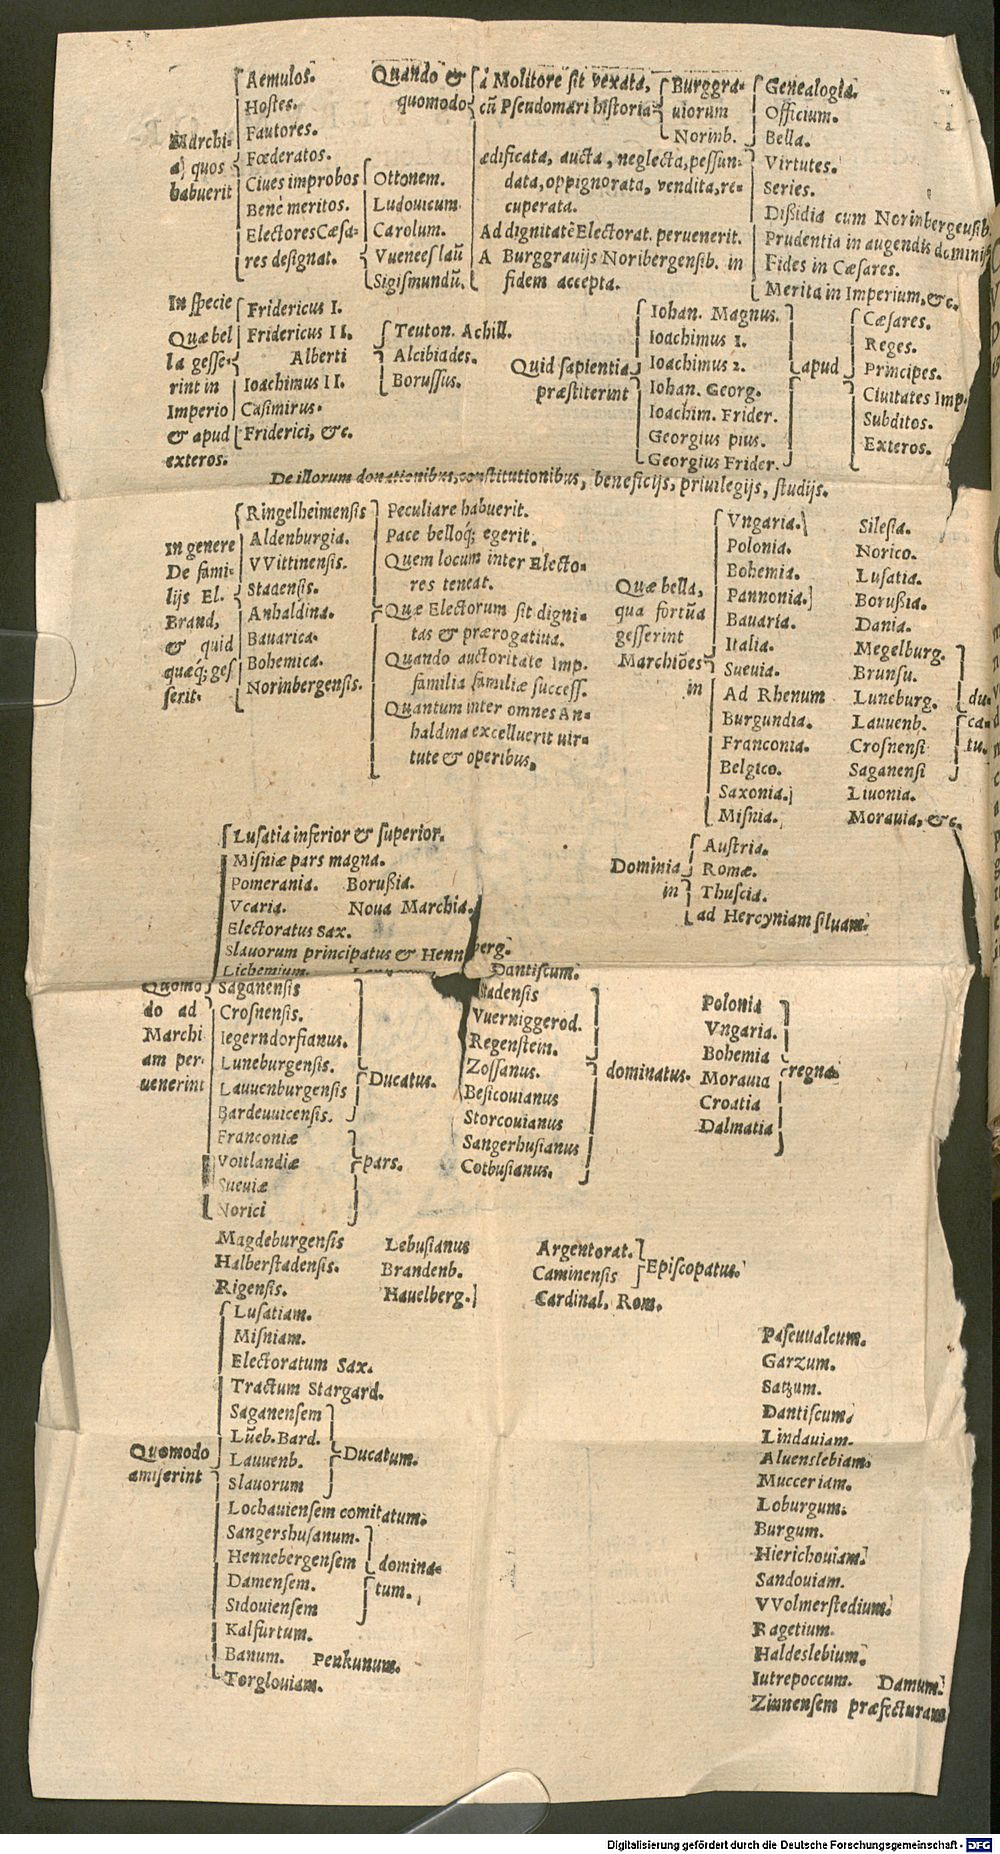 Marchi-
a) quos
habuerit
Aemulos.
Hostes.
Fautores.
Fœderatos.
Ciues improbos
Bene meritos.
Electores Cæsa-
res designat.
Ottonem.
Ludouicum
Carolum.
Vuenceslaū
Sigismundū.
Quando &
quomodo
à Molitore sit vexata,
cū Pseudomari historia
Burggra-
uiorum
Norinb.
ædificata, aucta, neglecta, pessun-
data, oppignorata, vendita, re-
cuperata.
Ad dignitatē Electorat. peruenerit.
A Burggrauijs Noribergensib. in
fidem accepta.
Genealogia.
Officium.
Bella.
Virtutes.
Series.
Dißidia cum Norinbergensib.
Prudentia in augendis dominijs
Fides in Cæsares.
Merita in Imperium, &c.
In specie
Quæ bel
la gesse-
rint in
Imperio
& apud
exteros.
Fridericus I.
Fridericus II.
Alberti
Ioachimus II.
Casimirus.
Friderici, &c.
Teuton. Achill.
Alcibiades.
Borussus.
Quid sapientia
præstiterint
Iohan. Magnus.
Ioachimus 1.
Ioachimus 2.
Iohan. Georg.
Ioachim. Frider.
Georgius pius.
Georgius Frider.
apud
Cæsares.
Reges.
Principes.
Ciuitates Imp.
Subditos.
Exteros.
De illorum donationibus, constitutionibus, beneficijs, priuilegijs, studijs.
In genere
De fami-
lijs El.
Brand,
& quid
quæq; ges
serit.
Ringelheimensis
Aldenburgia.
VVittinensis.
Stadensis.
Anhaldina.
Bauarica.
Bohemica.
Norinbergensis.
Peculiare habuerit.
Pace belloq́; egerit.
Quem locum inter Electo-
res teneat.
Quæ Electorum sit digni-
tas & prærogatiua.
Quando auctoritate Imp.
familia familiæ success.
Quantum inter omnes An-
haldina excelluerit uir-
tute & operibus.
Quæ bella,
qua fortūa
gesserint
Marchiōes
in
Vngaria.
Polonia.
Bohemia.
Pannonia.
Bauaria.
Italia.
Sueuia.
Ad Rhenum
Burgundia.
Franconia.
Belgico.
Saxonia.
Misnia.
Silesia.
Norico.
Lusatia.
Borußia.
Dania.
Megelburg.
Brunsu.
Luneburg.
Lauuenb.
Crosnensi
Saganensi
Liuonia.
Morauia, &c.
du-
ca-
tu.
Dominia
in
Austria.
Romæ.
Thuscia.
ad Hercyniam siluam.
Quomo
do ad
Marchi
am per-
uenerint
Lusatia inferior & superior.
Misniæ pars magna.
Pomerania. Borußia.
Vcaria. Noua Marchia.
Electoratus Sax.
Slauorum principatus & Henneberg.
Dantiscum.
Saganensis
Crosnensis.
Iegerndorfianus.
Luneburgensis.
Lauuenburgensis
Bardeuuicensis.
Ducatus.
Franconiæ
Voitlandiæ
Sueuiæ
Norici
pars.
Vuerniggerod.
Regenstein.
Zossanus.
Besicouianus
Storcouianus
Sangerhusianus
Cotbusianus.
dominatus.
Polonia
Vngaria.
Bohemia
Morauia
Croatia
Dalmatia
regna
Magdeburgensis
Halberstadensis.
Rigensis.
Lebusianus
Brandenb.
Hauelberg.
Argentorat.
Caminensis
Cardinal. Rom.
Episcopatus.
Quomodo
amiserint
Lusatiam.
Misniam.
Electoratum Sax.
Tractum Stargard.
Saganensem
Lūeb. Bard.
Lauuenb.
Slauorum
Ducatum.
Lochauiensem comitatum.
Sangershusanum.
Hennebergensem
Damensem.
Sidouiensem
domina-
tum.
Kalfurtum.
Banum. Penkunum.
Torglouiam.
Paseuualcum.
Garzum.
Satzum.
Dantiscum.
Lindauiam.
Aluenslebiam.
Mucceriam.
Loburgum.
Burgum.
Hierichouiam.
Sandouiam.
VVolmerstedium.
Ragetium.
Haldeslebium.
Iutrepoccum. Damum.
Zinnensem præfecturam
Digitalisierung gefördert durch die Deutsche Forschungsgemeinschaft - DFG